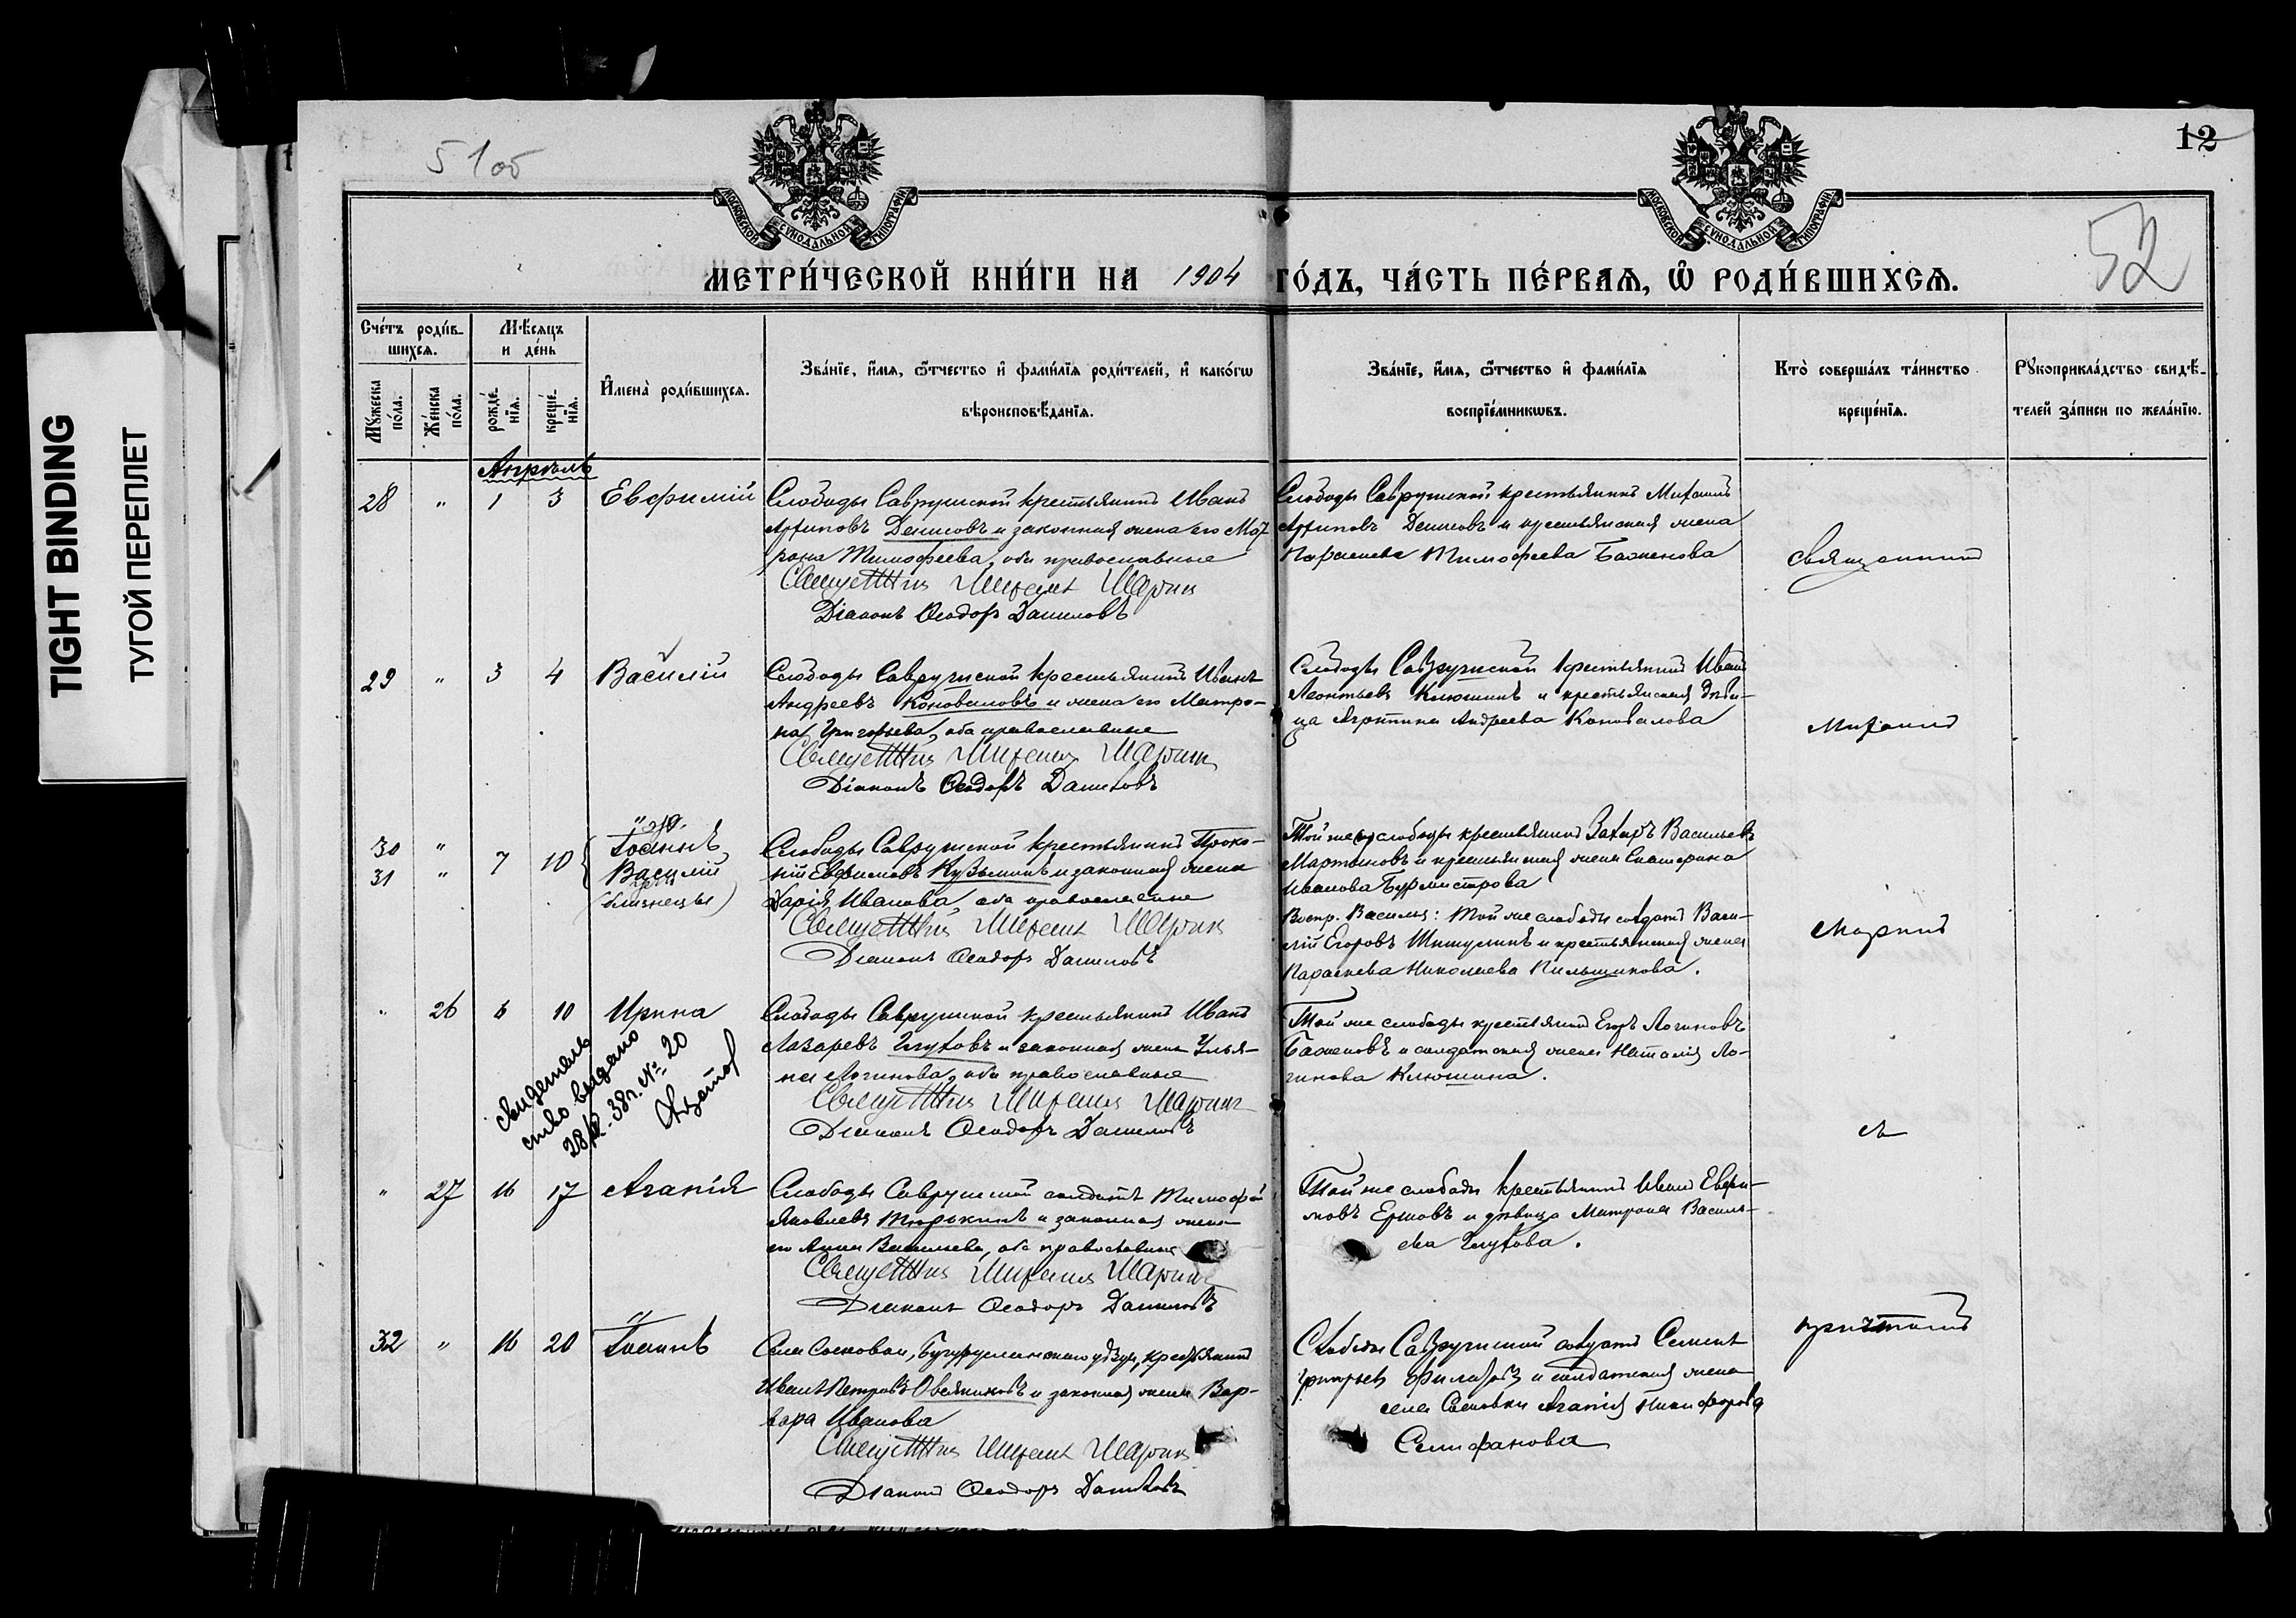 TIGHT BINDING
ТУГОЙ ПЕРЕПЛЕТ
51об
12
52
МОСКОВСКОЙ СѴНОДАЛЬНОЙ ТИПОГРАФІИ
МОСКОВСКОЙ СѴНОДАЛЬНОЙ ТИПОГРАФІИ
МЕТРИ́ЧЕСКОЙ КНИ́ГИ НА 1904 ГО́ДЪ, ЧА́СТЬ ПЕ́РВАѦ, Ѡ҆ РОДИ́ВШИХСѦ.
Сче́тъ роди́в-
шихсѧ.
Мꙋ́жеска по́ла.
Же́нска по́ла.
Мѣ́сѧцъ
и де́нь
рожде́-
нїѧ.
креще́-
нїѧ.
И҆мена̀ роди́вшихсѧ.
Зва́нїе, и҆́мѧ, ѻ҆́тчество и҆ фами́лїѧ роди́телей, и҆ како́гѡ
вѣроисповѣ́данїѧ.
Зва́нїе, и҆́мѧ, ѻ҆́тчество и҆ фами́лїѧ
воспрїе́мникѡвъ.
Кто̀ соверша́лъ та́инство
креще́нїѧ.
Рꙋкоприкла́дство свидѣ́-
телей за́писи по жела́нїю.
Апрѣль
28 " 1 3 Евфимій
Слободы Саврушской крестьянинъ Иванъ
Архиповъ Денисовъ и законная жена его Мат-
рона Тимофеева, оба православные
Священникъ Михаилъ Маркинъ
Діаконъ Ѳеодоръ Даниловъ
Слободы Саврушской крестьянинъ Михаилъ
Архиповъ Денисовъ и крестьянская жена
Параскева Тимофеева Баженова
священникъ
29 " 3 4 Василій
Слободы Саврушской крестьянинъ Иванъ
Андреевъ Коноваловъ и жена его Матро-
на Григорьева, оба православные
Священникъ Михаилъ Маркинъ
Діаконъ Ѳеодоръ Даниловъ
Слободы Саврушской крестьянинъ Иванъ
Леонтьевъ Клюшинъ и крестьянская дѣви-
ца Агриппина Андреева Коновалова
Михаилъ
30 " 7 10 Іоаннъ
31 " Василій
(близнецы)
Слободы Саврушской крестьянинъ Проко-
пій Евфимовъ Кузьминъ и законная жена
Дарія Иванова, оба православные
Священникъ Михаилъ Маркинъ
Діаконъ Ѳеодоръ Даниловъ
Той же слободы крестьянинъ Захаръ Васильевъ
Мартыновъ и крестьянская жена Екатерина
Иванова Бурмистрова
Воспр. Василія: Той же слободы солдатъ Васи-
лій Егоровъ Шишулинъ и крестьянская жена
Параскева Николаева Пильщикова.
Маркинъ
" 26 6 10 Ирина
Слободы Саврушской крестьянинъ Иванъ
Лазаревъ Глуховъ и законная жена Улья-
на Логинова, оба православные
Священникъ Михаилъ Маркинъ
Діаконъ Ѳеодоръ Даниловъ
Той же слободы крестьянинъ Егоръ Логиновъ
Баженовъ и солдатская жена Наталія Ло-
гинова Клюшина.
свидетель
ство выдано
38г. № 20
съ
" 27 16 17 Агапія
Слободы Саврушской солдатъ Тимофей
Яковлевъ Тюрькинъ и законная жена
его Анна Васильева, оба православные
Священникъ Михаилъ Маркинъ
Діаконъ Ѳеодоръ Даниловъ
Той же слободы крестьянинъ Иванъ Евфи-
мовъ Ершовъ и дѣвица Матрона Василь-
ева Глухова.
32 " 16 20 Іоаннъ
Села Сосновки, Бугурусланскаго уѣзда, крестьянинъ
Иванъ Петровъ Овсянниковъ и законная жена Вар-
вара Иванова
Священникъ Михаилъ Маркинъ
Діаконъ Ѳеодоръ Даниловъ
Слободы Саврушской солдатъ Семенъ
Григорьевъ Филатовъ и солдатская жена
села Сосновки Агапія Никифорова
Селифанова
причтомъ